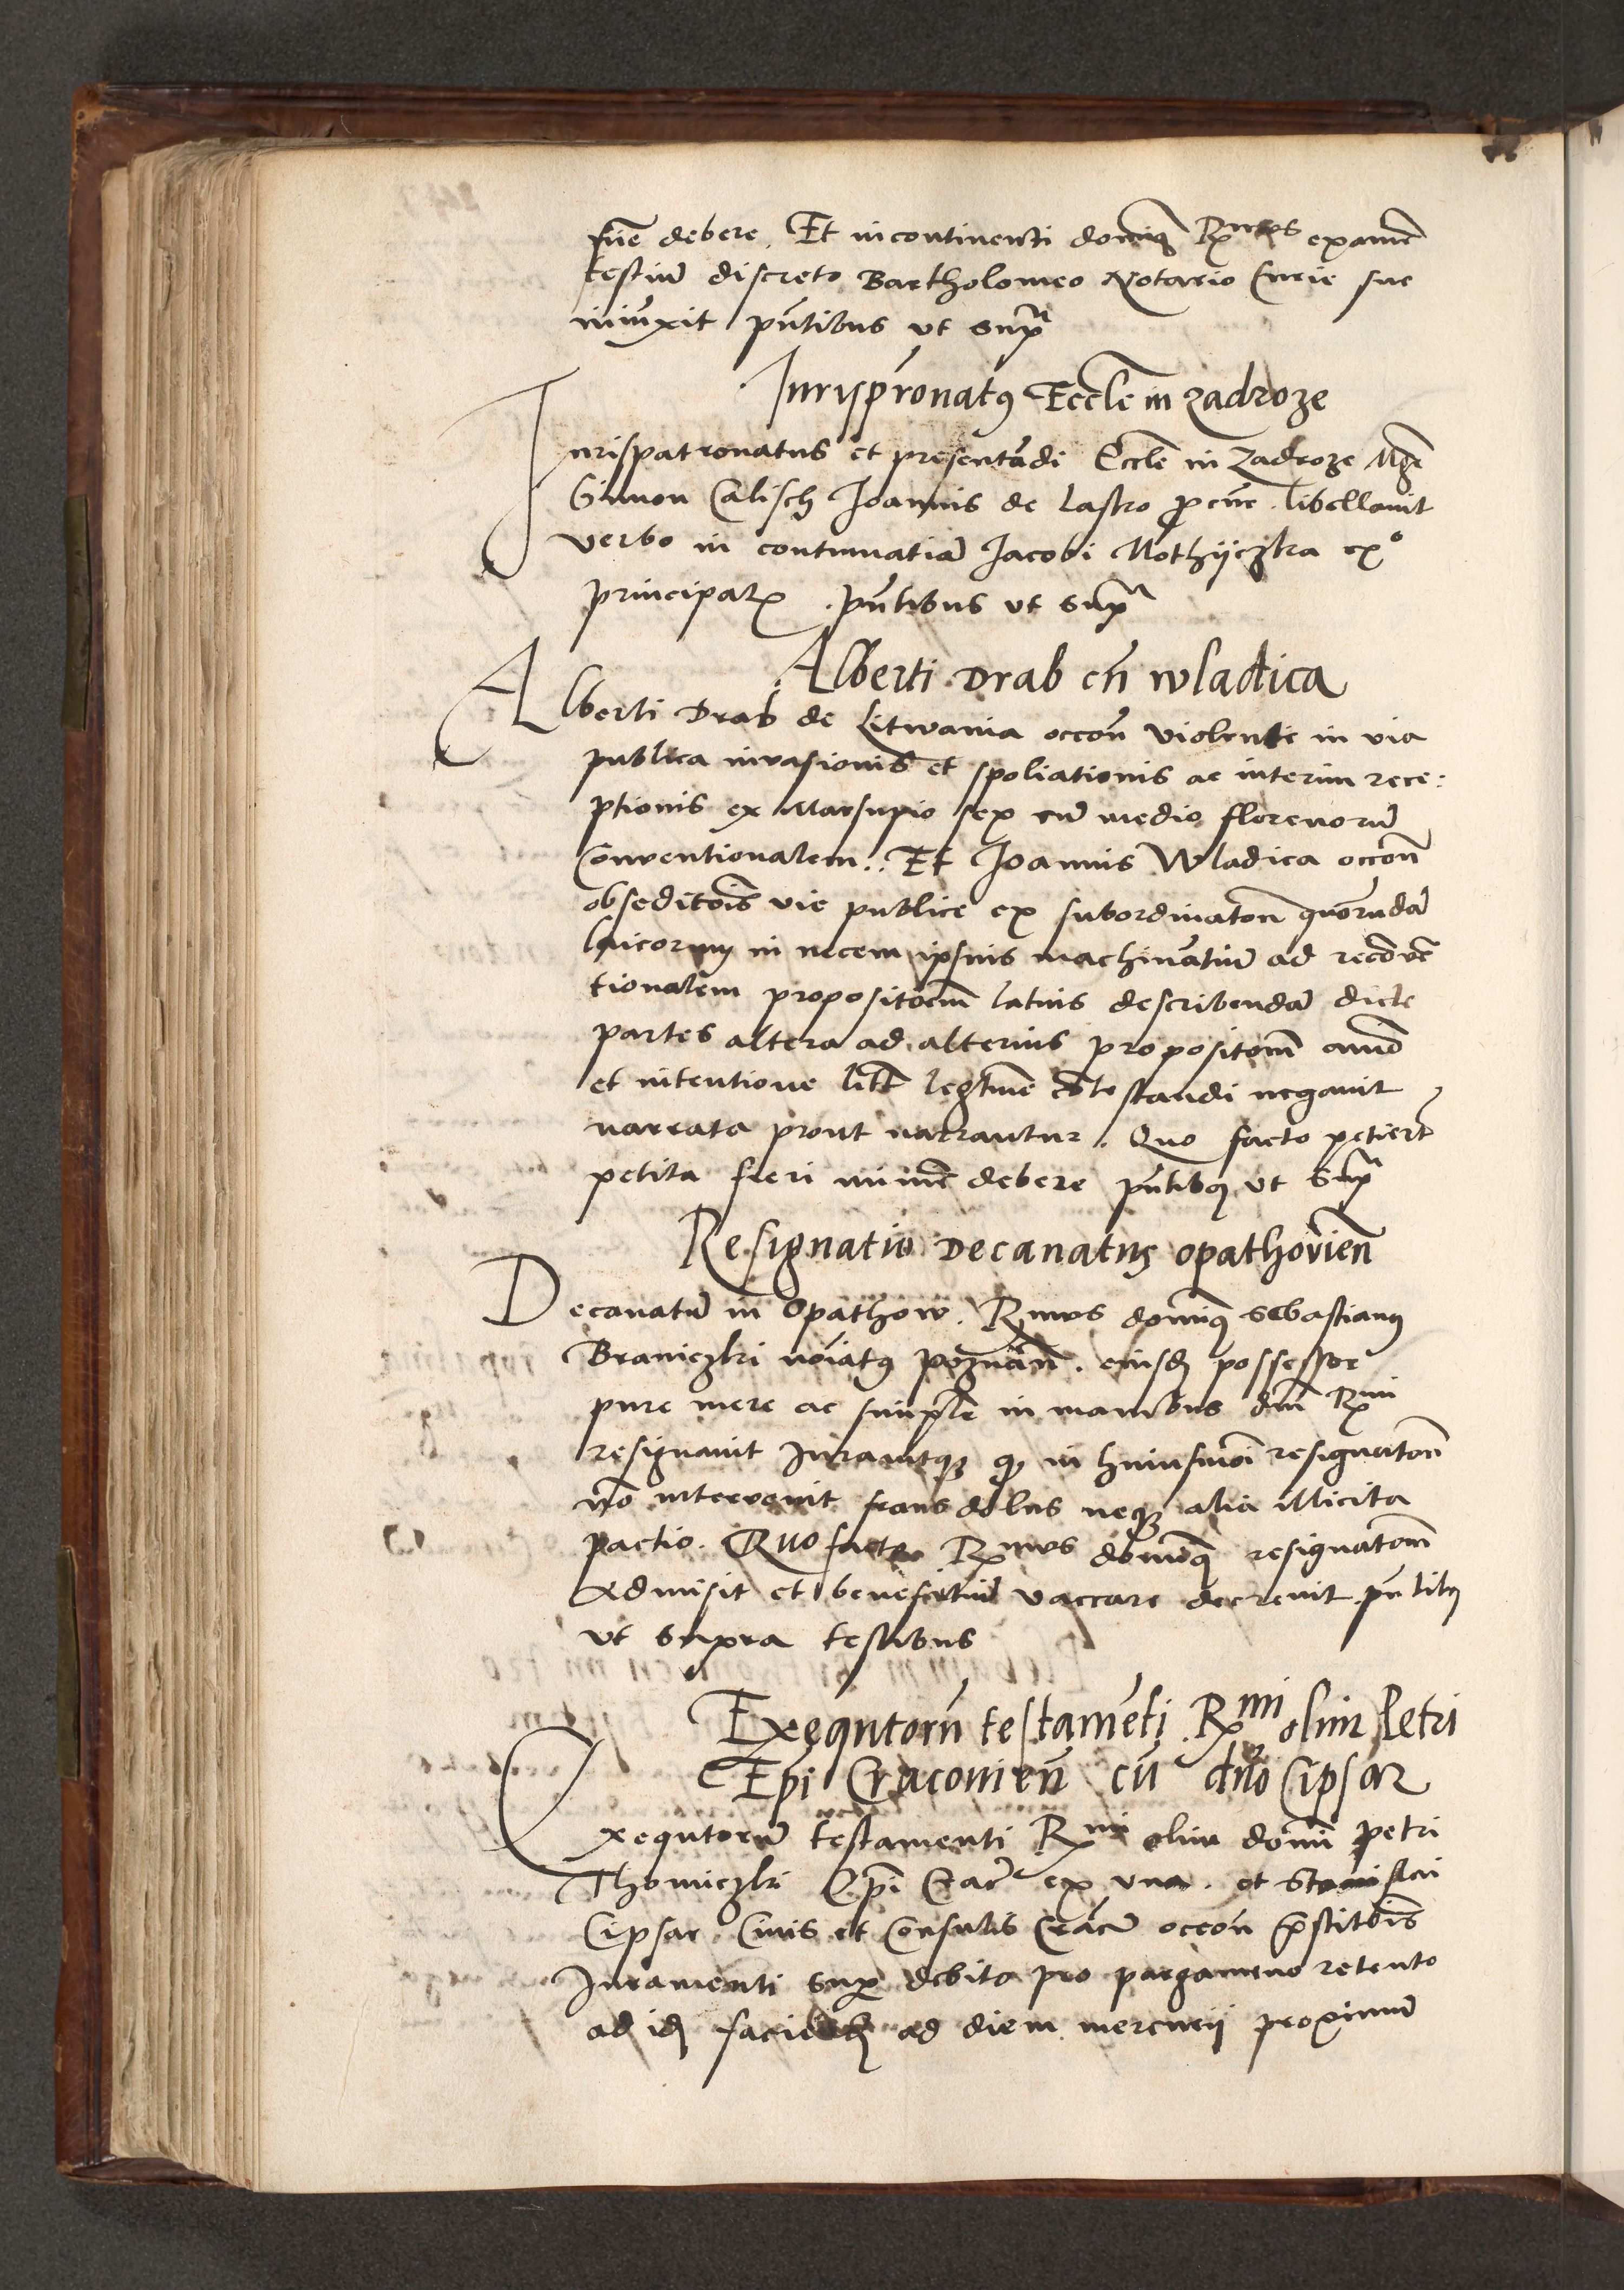 fue debere. Et incontinenti dominus Rmus examen
testium discreto Bartholomeo Notario Curie sue
iniunxit pntibus ut supra
Jurispronatus Eccle in Zadroze
Jurispatronatus et presentandi Eccle in Zadroze Mgr
Simon Calisch Joannis de Lastro libellavit
verbo in contumatia Jacobi Mothyczka exº
principalis. pntibus ut supra
Alberti Drab cu wladica
Alberti Drab de Litwania occon violente in via
publica invasionis et spoliationis ac interim rece:
ptionis ex Marsupio sex cu medio florenoru
Conventionalem. Et Joannis Wladica occon
obseditois vie publice ex subordinaton quorunda
laicorum in necem ipsius machinatiu ad reconve
tionalem propositoem latius describenda dicte
partes altera ad alterius propositom animo
et intentione lite legtime cotestandi negavit
narrata prout narrantur. Quo facto petiert
petita fieri debere pntibus ut supra
Resignatio Decanatus opathovien
Decanatu in Opathow. Rmus dominus Sebastianus
Braniczki noiatus poznan. eiusd possessor
pure mere ac simple in manibus dni Rmi
resignavit Juravitque quod in huiusmoi resignaton
no intervenit fraus dolus neque alia illicita
pactio. Quo facto Rmus dominus resignatom
admisit et beneficiu vaccare decrevit pntibus
ut supra testibus
Exequtoru testameti Rmi olim Petri
Epi Cracovien cu dno Cipsar
Exequtoru testamenti Rmi olim domini petri
Thomiczki Epi Crac ex una. et Stanislai
Cipsar Civis et Consulis Crac occon prestitois
Juramenti super debito pro pargameno retento
ad id faciend ad diem mercurii proximum